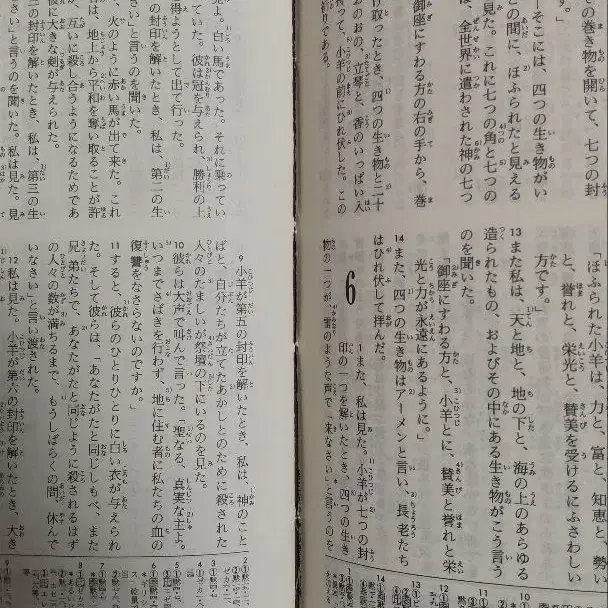 の巻き物を開いて、七つの封
す。」
そこには、四つの生き物がい
との間に、ほふられたと見える
見た。これに七つの角と七つの
は、全世界に遣わされた神の七つ
御座にすわる方の右の手から、巻
け取ったとき、四つの生き物と二十
おのおの、立琴と、香のいっぱい入
持って、小羊の前にひれ伏した。この
祈りである。
「ほふられた小羊は、力と、富と、知恵と、勢い
と、誉れと、栄光と、賛美を受けるにふさわしい
方です。」
13 また私は、天と地と、地の下と、海の上のあらゆる
造られたもの、およびその中にある生き物がこう言う
のを聞いた。
「御座にすわる方と、小羊とに、賛美と誉れと栄
光と力が永遠にあるように。」
14 また、四つの生き物はアーメンと言い、長老たち
はひれ伏して拝んだ。
6
1 また、私は見た。小羊が七つの封
印の一つを解いたとき、四つの生き
物の一つが、雷のような声で「来なさい」と言うのを
見よ。白い馬であった。それに乗ってい
っていた。彼は冠を与えられ、勝利の上
得ようとして出て行った。
の封印を解いたとき、私は、第二の生
さい」と言うのを聞いた。
、火のように赤い馬が出て来た。これ
者は、地上から平和を奪い取ることが許
互いに殺し合うようになるためであ
彼に大きな剣が与えられた。
の封印を解いたとき、私は、第三の生
さい」と言うのを聞いた。私は見た。見
9 小羊が第五の封印を解いたとき、私は、神のこと
ばと、自分たちが立てたあかしとのために殺された
人々のたましいが祭壇の下にいるのを見た。
10 彼らは大声で叫んで言った。「聖なる、真実な主よ。
いつまでさばきを行わず、地に住む者に私たちの血の
復讐をなさらないのですか。」
11 すると、彼らのひとりひとりに白い衣が与えられ
た。そして彼らは、「あなたがたと同じしもべ、また
兄弟たちで、あなたがたと同じように殺されるはず
の人々の数が満ちるまで、もうしばらくの間、休んで
いなさい」と言い渡された。
12 私は見た。小羊が第六の封印を解いたとき、大き